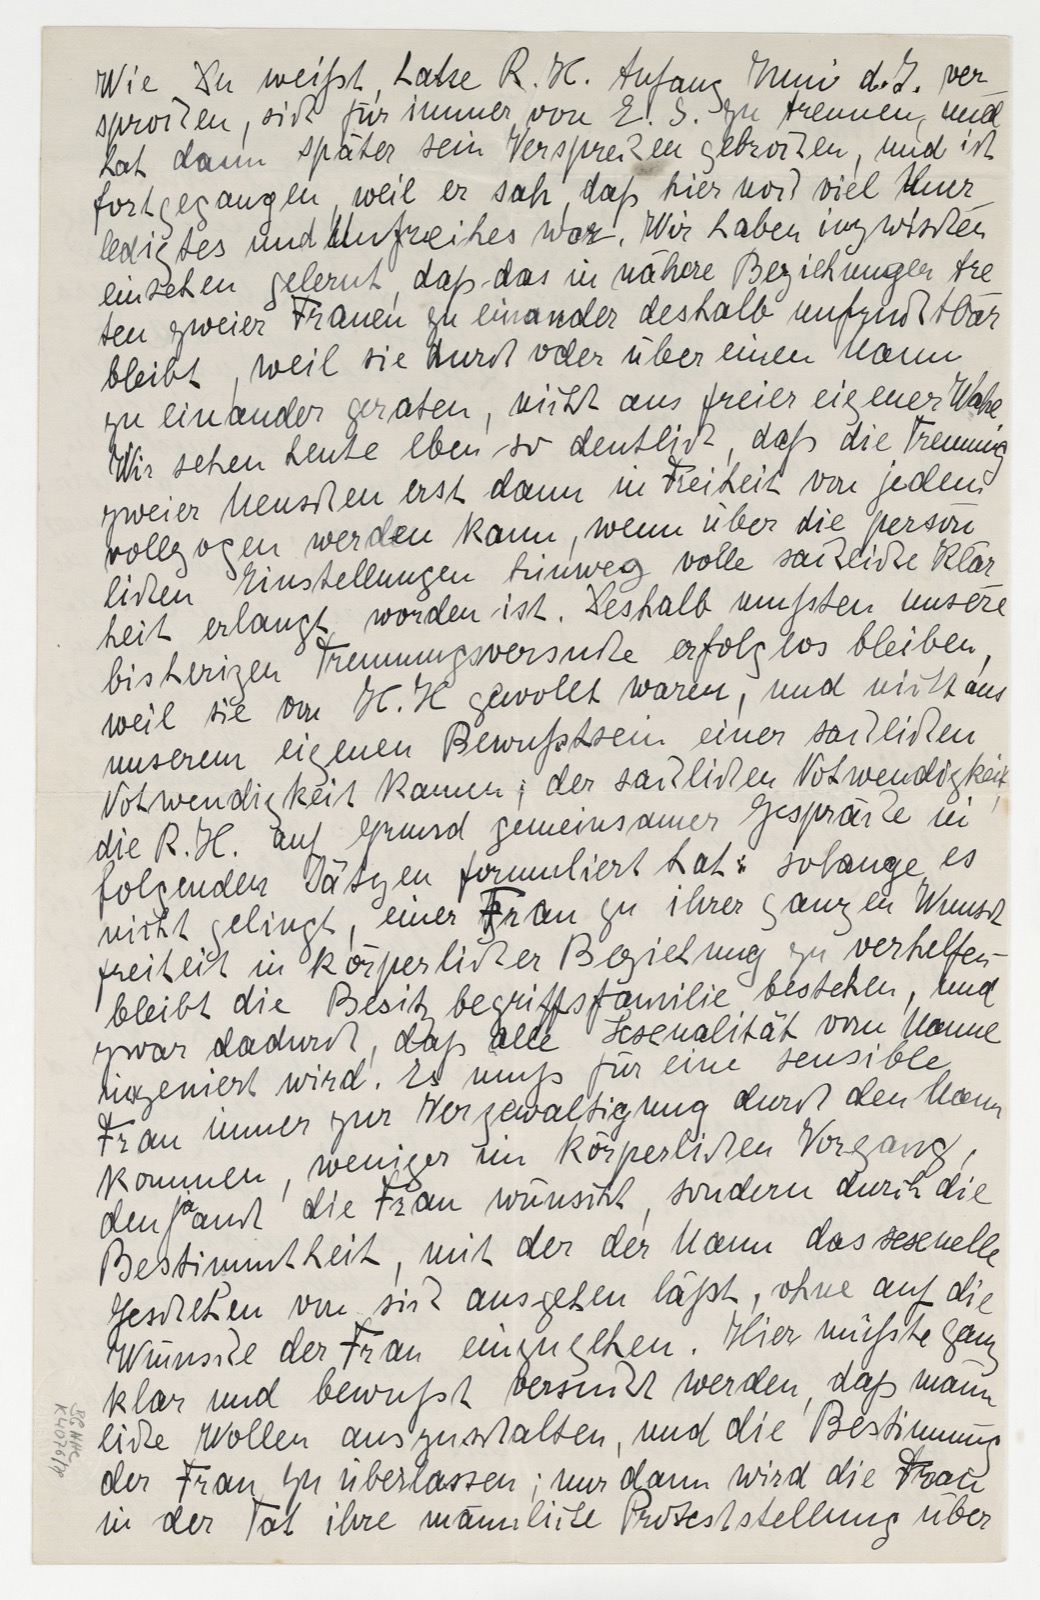 Wie Du weißt, hatte R. H. Anfang Juni d. J. ver-
sprochen, sich für immer von E. S. zu trennen, und
hat dann später sein Versprechen gebrochen, und ist
fortgegangen, weil er sah, daß hier noch viel Uner
ledigtes und Unfreihes war. Wir haben inzwischen
einsehen gelernt, daß das in nähere Beziehungen tre
ten zweier Frauen zu einander deshalb unfruchtbar
bleibt, weil sie durch oder über einen Mann
zu einander geraten, nicht aus freier eigener Wahl
Wir sehen heute eben so deutlich, daß die Trennung
zweier Menschen erst dann in Freiheit von jedem
vollzogen werden kann, wenn über die persön
lichen Einstellungen hinweg volle sachliche Klar
heit erlangt worden ist. Deshalb mußten unsere
bisherigen Trennungsversuche erfolglos bleiben,
weil sie von H. H gewollt waren, und nicht aus
unserem eigenen Bewußtsein einer sachlichen
Notwendigkeit kamen; der sachlichen Notwendigkeit,
die R. H. auf Grund gemeinsamer Gespräche in
folgenden Sätzen formuliert hat: solange es
nicht gelingt, einer Frau zu ihrer ganzen Wunsch
freiheit in körperlicher Beziehung zu verhelfen-
bleibt die Besitzbegriffsfamilie bestehen, und
zwar dadurch, daß alle Sexualität vom Manne
ingeniert wird. Es muß für eine sensible
Frau immer zur Vergewaltigung durch den Mann
kommen, weniger im körperlichen Vorgang,
den ja auch die Frau wünscht, sondern durch die
Bestimmtheit, mit der der Mann das sexuelle
Geschehen von sich ausgehen läßt, ohne auf die
Wünsche der Frau einzugehen. Hier müßte ganz
klar und bewußt versucht werden, daß männ
liche Wollen auszuschalten, und die Bestimmung
der Frau zu überlassen; nur dann wird die Frau
in der Tat ihre männliche Proteststellung über
BG HHC
K 4076/79